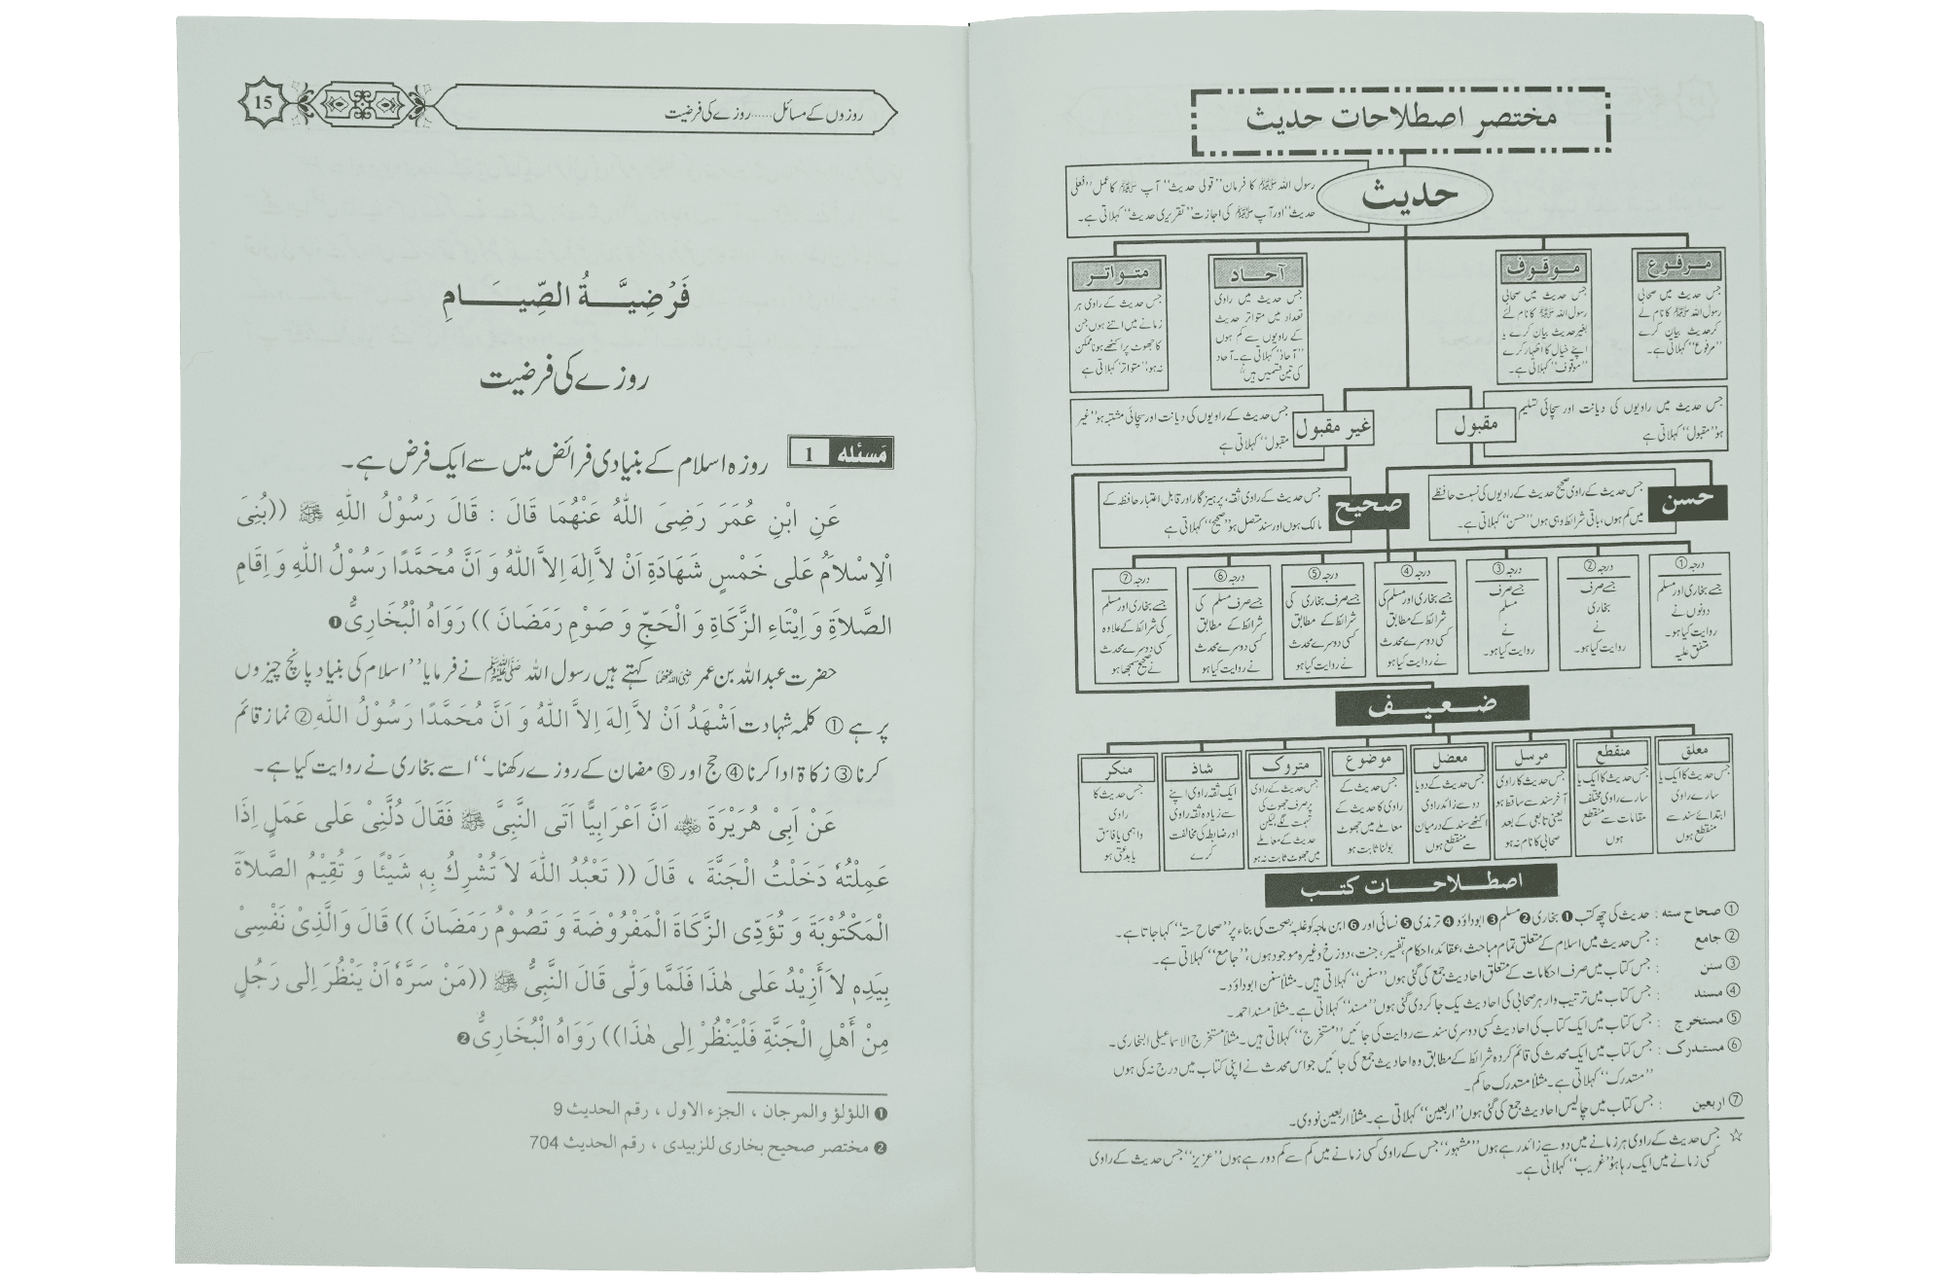 مختصر اصطلاحات حدیث
حدیث
رسول اللہ ﷺ کا فرمان ’’قولی حدیث‘‘ آپ ﷺ کا عمل ’’فعلی
حدیث‘‘ اور آپ ﷺ کی اجازت ’’تقریری حدیث‘‘ کہلاتی ہے۔
مرفوع
جس حدیث میں صحابی
رسول اللہ ﷺ کا نام لے
کر حدیث بیان کرے
’’مرفوع‘‘ کہلاتی ہے۔
موقوف
جس حدیث میں صحابی
رسول اللہ ﷺ کا نام لئے
بغیر حدیث بیان کرے یا
اپنے خیال کا اظہار کرے
’’موقوف‘‘ کہلاتی ہے۔
آحاد
جس حدیث میں راوی
تعداد میں متواتر حدیث
کے راویوں سے کم ہوں
’’آحاد‘‘ کہلاتی ہے۔ آحاد
کی تین قسمیں ہیں☆
متواتر
جس حدیث کے راوی ہر
زمانے میں اتنے ہوں جن
کا جھوٹ پر اکٹھے ہونا ممکن
نہ ہو، ’’متواتر‘‘ کہلاتی ہے
مقبول
جس حدیث میں راویوں کی دیانت اور سچائی تسلیم
ہو ’’مقبول‘‘ کہلاتی ہے
غیر مقبول
جس حدیث کے راویوں کی دیانت اور سچائی مشتبہ ہو ’’غیر
مقبول‘‘ کہلاتی ہے
حسن
جس حدیث کے راوی صحیح حدیث کے راویوں کی نسبت حافظے
میں کم ہوں، باقی شرائط وہی ہوں ’’حسن‘‘ کہلاتی ہے۔
صحیح
جس حدیث کے راوی ثقہ، پرہیز گار اور قابل اعتبار حافظہ کے
مالک ہوں اور سند متصل ہو ’’صحیح‘‘ کہلاتی ہے
درجہ ①
جسے بخاری اور مسلم
دونوں نے
روایت کیا ہو۔
متفق علیہ
درجہ ②
جسے صرف
بخاری
نے
روایت کیا ہو۔
درجہ ③
جسے صرف
مسلم
نے
روایت کیا ہو۔
درجہ ④
جسے بخاری اور مسلم کی
شرائط کے مطابق
کسی دوسرے محدث
نے روایت کیا ہو
درجہ ⑤
جسے صرف بخاری کی
شرائط کے مطابق
کسی دوسرے محدث
نے روایت کیا ہو
درجہ ⑥
جسے صرف مسلم کی
شرائط کے مطابق
کسی دوسرے محدث
نے روایت کیا ہو
درجہ ⑦
جسے بخاری اور مسلم
کی شرائط کے علاوہ
کسی دوسرے محدث
نے صحیح سمجھا ہو
ضعیف
معلق
جس حدیث کا ایک یا
سارے راوی
ابتدائے سند سے
منقطع ہوں
منقطع
جس حدیث کا ایک یا
سارے راوی مختلف
مقامات سے منقطع
ہوں
مرسل
جس حدیث کا راوی
آخر سند سے ساقط ہو
یعنی تابعی کے بعد
صحابی کا نام نہ ہو
معضل
جس حدیث کے دو یا
دو سے زائد راوی
اکٹھے سند کے درمیان
سے منقطع ہوں
موضوع
جس حدیث کے
راوی کا حدیث کے
معاملے میں جھوٹ
بولنا ثابت ہو
متروک
جس حدیث کے راوی
پر صرف جھوٹ کی
تہمت لگے لیکن
حدیث کے معاملے
میں جھوٹ ثابت نہ ہو
شاذ
ایک ثقہ راوی اپنے
سے زیادہ ثقہ راوی
اور ضابطہ کی مخالفت
کرے
منکر
جس حدیث کا
راوی
واہمی یا فاسق
یا بدعتی ہو
اصطلاحات کتب
① صحاح ستہ : حدیث کی چھ کتب ❶ بخاری ❷ مسلم ❸ ابوداؤد ❹ ترمذی ❺ نسائی اور ❻ ابن ماجہ کو غلبہ صحت کی بناء پر ’’صحاح ستہ‘‘ کہا جاتا ہے۔
② جامع : جس حدیث میں اسلام کے متعلق تمام مباحث، عقائد، احکام، تفسیر، جنت، دوزخ وغیرہ موجود ہوں، ’’جامع‘‘ کہلاتی ہے۔
③ سنن : جس کتاب میں صرف احکامات کے متعلق احادیث جمع کی گئی ہوں ’’سنن‘‘ کہلاتی ہیں۔ مثلاً سنن ابوداؤد۔
④ مسند : جس کتاب میں ترتیب وار ہر صحابی کی احادیث یک جا کر دی گئی ہوں ’’مسند‘‘ کہلاتی ہے۔ مثلاً مسند احمد۔
⑤ مستخرج : جس کتاب میں ایک کتاب کی احادیث کسی دوسری سند سے روایت کی جائیں ’’مستخرج‘‘ کہلاتی ہیں۔ مثلاً مستخرج الاسماعیلی البخاری۔
⑥ مستدرک : جس کتاب میں ایک محدث کی قائم کردہ شرائط کے مطابق وہ احادیث جمع کی جائیں جو اس محدث نے اپنی کتاب میں درج نہ کی ہوں
’’مستدرک‘‘ کہلاتی ہے۔ مثلاً مستدرک حاکم۔
⑦ اربعین : جس کتاب میں چالیس احادیث جمع کی گئی ہوں ’’اربعین‘‘ کہلاتی ہے۔ مثلاً اربعین نووی۔
☆ جس حدیث کے راوی ہر زمانے میں دو سے زائد رہے ہوں ’’مشہور‘‘ جس کے راوی کسی زمانے میں کم سے کم دو رہے ہوں ’’عزیز‘‘ جس حدیث کے راوی
کسی زمانے میں ایک رہا ہو ’’غریب‘‘ کہلاتی ہے۔
روزوں کے مسائل......روزے کی فرضیت
15
فَرْضِيَّةُ الصِّيَامِ
روزے کی فرضیت
مَسئله 1 روزہ اسلام کے بنیادی فرائض میں سے ایک فرض ہے۔
عَنِ ابْنِ عُمَرَ رَضِیَ اللّٰهُ عَنْهُمَا قَالَ : قَالَ رَسُوْلُ اللّٰهِ ﷺ ((بُنِیَ
اْلاِسْلاَمُ عَلٰی خَمْسٍ شَهَادَةِ اَنْ لاَّ اِلٰهَ اِلاَّ اللّٰهُ وَ اَنَّ مُحَمَّدًا رَسُوْلُ اللّٰهِ وَ اِقَامِ
الصَّلاَةِ وَ اِيْتَاءِ الزَّكَاةِ وَ الْحَجِّ وَ صَوْمِ رَمَضَانَ )) رَوَاهُ الْبُخَارِیُّ❶
حضرت عبداللہ بن عمر رضی اللہ عنہما کہتے ہیں رسول اللہ ﷺ نے فرمایا ’’اسلام کی بنیاد پانچ چیزوں
پر ہے ① کلمہ شہادت اَشْهَدُ اَنْ لاَّ اِلٰهَ اِلاَّ اللّٰهُ وَ اَنَّ مُحَمَّدًا رَسُوْلُ اللّٰهِ ② نماز قائم
کرنا ③ زکاۃ ادا کرنا ④ حج اور ⑤ مضان کے روزے رکھنا۔‘‘ اسے بخاری نے روایت کیا ہے۔
عَنْ اَبِیْ هُرَيْرَةَ ؓ اَنَّ اَعْرَابِيًّا اَتَی النَّبِیَّ ﷺ فَقَالَ دُلَّنِیْ عَلٰی عَمَلٍ اِذَا
عَمِلْتُهُ دَخَلْتُ الْجَنَّةَ ، قَالَ (( تَعْبُدُ اللّٰهَ لاَ تُشْرِكُ بِهٖ شَيْئًا وَ تُقِيْمُ الصَّلاَةَ
الْمَكْتُوْبَةَ وَ تُؤَدِّی الزَّكَاةَ الْمَفْرُوْضَةَ وَ تَصُوْمُ رَمَضَانَ )) قَالَ وَالَّذِیْ نَفْسِیْ
بِيَدِهٖ لاَ أَزِيْدُ عَلٰی هٰذَا فَلَمَّا وَلّٰی قَالَ النَّبِیُّ ﷺ ((مَنْ سَرَّهُ اَنْ يَنْظُرَ اِلٰی رَجُلٍ
مِنْ أَهْلِ الْجَنَّةِ فَلْيَنْظُرْ اِلٰی هٰذَا)) رَوَاهُ الْبُخَارِیُّ❷
❶ اللؤلؤ والمرجان ، الجزء الاول ، رقم الحديث 9
❷ مختصر صحيح بخاری للزبيدی ، رقم الحديث 704